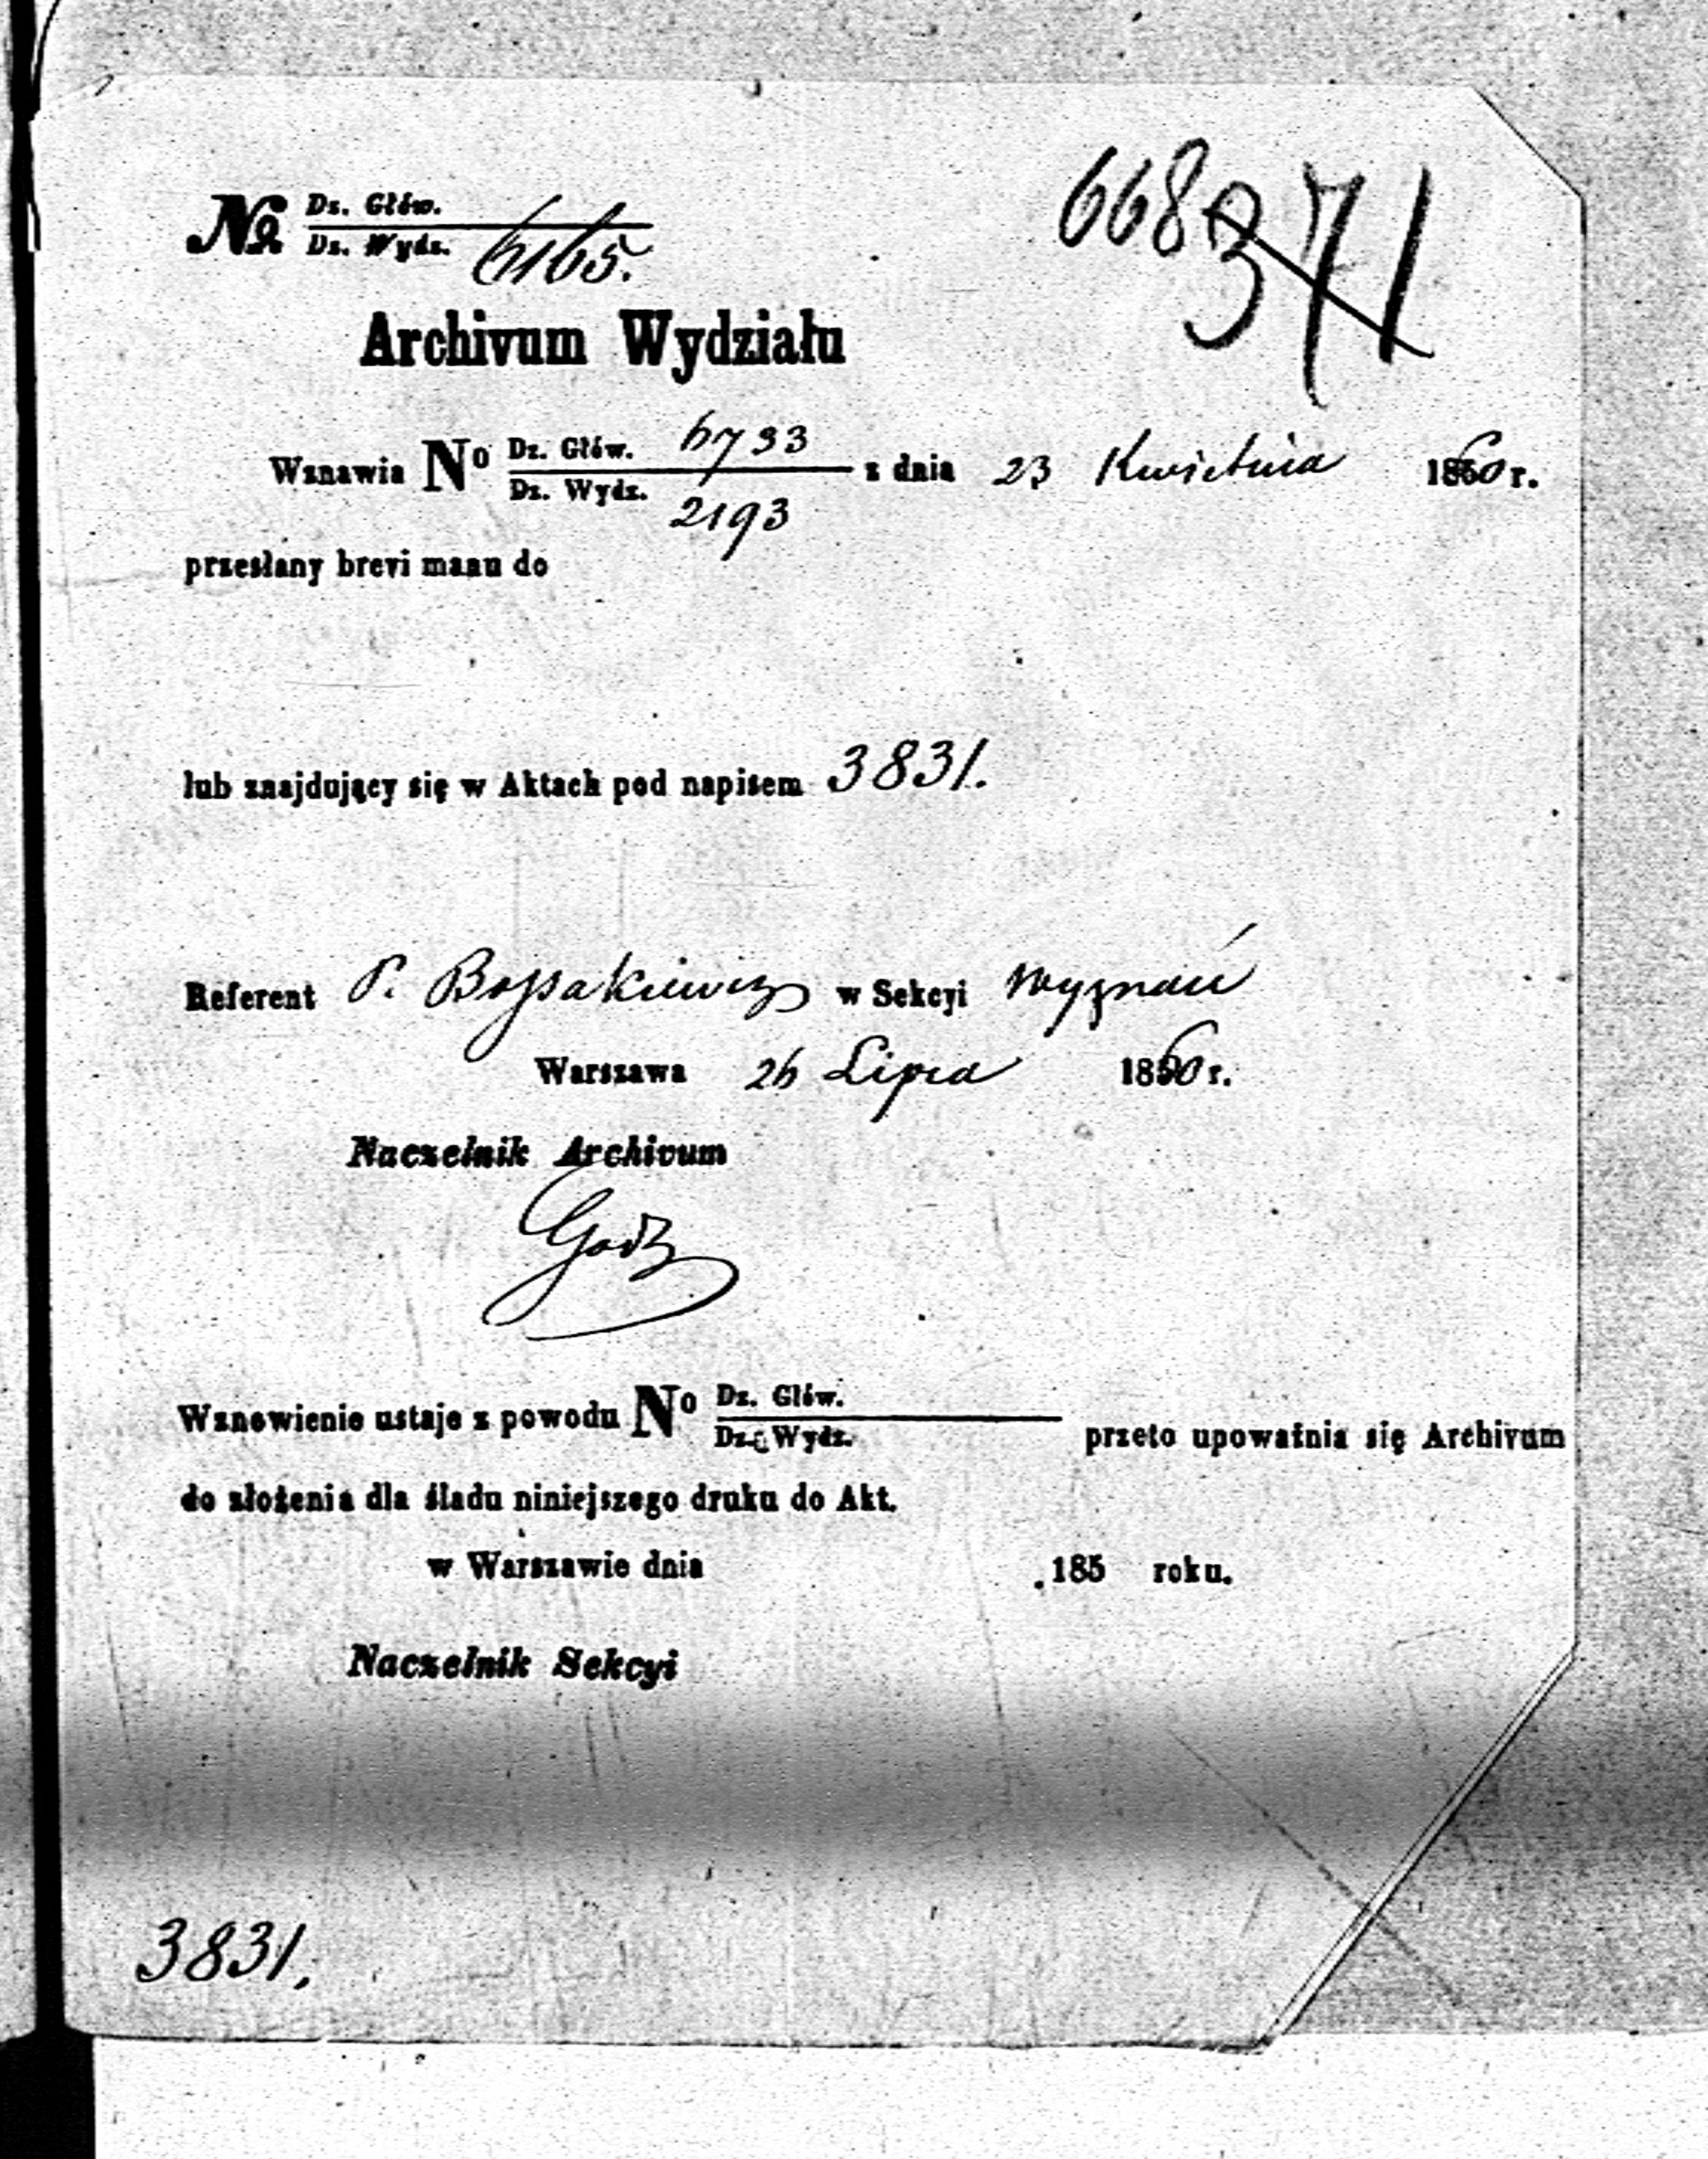 668
371
№ Dz. Głów.
Dz. Wydz. 6165.
Archivum Wydziału
Wznawia No Dz. Głów. 6733 z dnia 23 Kwietnia 1860 r.
Dz. Wydz. 2193
przesłany brevi manu do
lub znajdujący się w Aktach pod napisem 3831.
Referent P. Bossakiewicz w Sekcyi Wyznań
Warszawa 26 Lipca 1860 r.
Naczelnik Archivum
Wznowienie ustaje z powodu No Dz. Głów.
Dz. Wydz. przeto upoważnia się Archivum
do złożenia dla śladu niniejszego druku do Akt.
w Warszawie dnia 185 roku.
Naczelnik Sekcyi
3831.